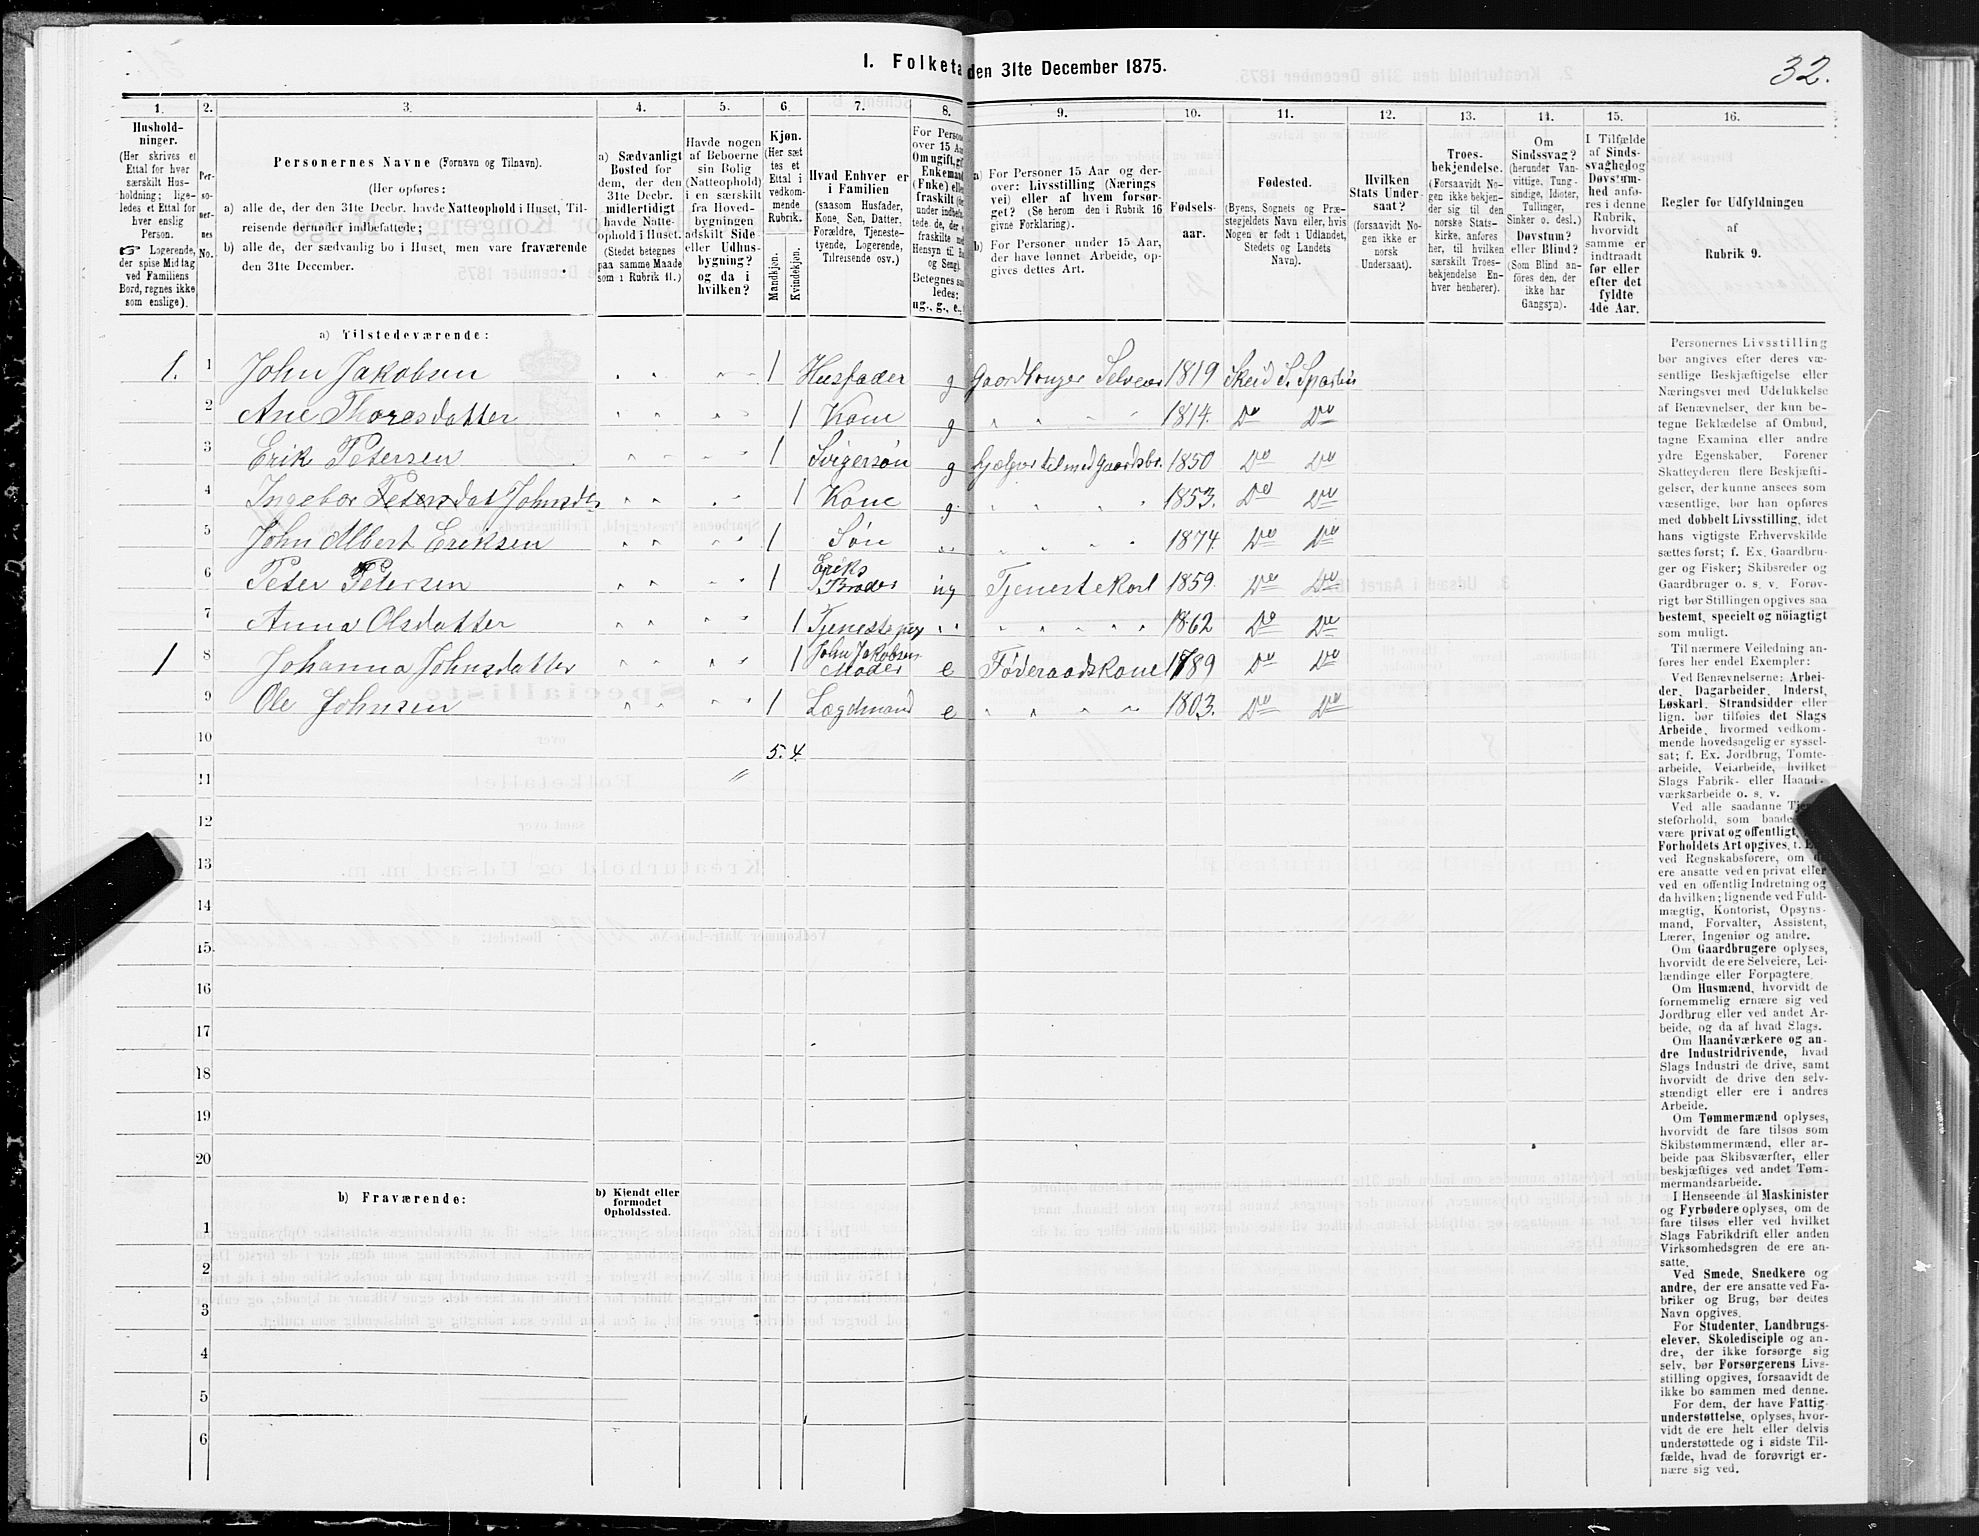 1. Folketa den 31te December 1875.
32.
1.
2.
3.
4.
5.
6.
7.
8.
9.
10.
11.
12.
13.
14.
15.
16.
Hushold-
ninger.
(Her skrives et
Ettal for hver
særskilt Hus-
holdning; lige-
ledes et Ettal for
hver enslig
Person.
☞ Logerende,
der spise Middag
ved Familiens
Bord, regnes ikke
som enslige).
Per-
so-
ner-
nes
No.
Personernes Navne (Fornavn og Tilnavn).
(Her opføres:
a) alle de, der den 31te Decbr. havde Natteophold i Huset, Til-
reisende derunder indbefattede;
b) alle de, der sædvanlig bo i Huset, men vare fraværende
den 31te December.
a) Sædvanligt
Bosted for
dem, der den
31te Decbr.
midlertidigt
havde Natte-
ophold i Huset.
(Stedet betegnes
paa samme Maade
som i Rubrik 11.)
Havde nogen
af Beboerne
sin Bolig
(Natteophold)
i en særskilt
fra Hoved-
bygningen
adskilt Side
eller Udhus-
bygning?
og da i
hvilken?
Kjøn.
(Her sæt
tes et
Ettal i
vedkom-
mende
Rubrik.
Mandkjøn.
Kvindekjøn.
Hvad Enhver er
i Familien
(saasom Husfader,
Kone, Søn, Datter,
Forældre, Tjeneste-
tyende, Logerende,
Tilreisende osv.)
For Persone
over 15 Aa
Om ugift, gif
Enkemand
(Enke) elle
fraskilt (he
under indbefa
tede de, der e
fraskilte me
Hensyn til Bo
og Seng).
Betegnes saa
ledes:
ug., g., e.,
a) For Personer 15 Aar og der-
over: Livsstilling (Nærings
vei) eller af hvem forsør-
get? (Se herom den i Rubrik 16
givne Forklaring).
b) For Personer under 15 Aar,
der have lønnet Arbeide, op-
gives dettes Art.
Fødsels-
aar.
Fødested.
(Byens, Sognets og Præ-
stegjeldets Navn eller, hvis
Nogen er født i Udlandet,
Stedets og Landets
Navn).
Hvilken
Stats Under-
saat?
(forsaavidt No-
gen ikke er
norsk
Undersaat).
Troes-
bekjendelse.
(Forsaavidt No-
gen ikke bekjen-
der sig til den
norske Stats-
kirke, anføres
her, til hvilken
særskilt Troes-
bekjendelse En-
hver henhører).
Om
Sindssvag?
(herunder Van-
vittige, Tung-
sindige, Idioter,
Tullinger,
Sinker o. desl.)
Døvstum?
eller Blind?
(Som Blind an-
føres den, der
ikke har
Gangsyn).
I Tilfælde
af Sinds-
svaghed og
Døvstum-
hed anfø-
res i denne
Rubrik,
hvorvidt
samme er
indtraadt
før eller
efter det
fyldte
4de Aar.
Regler for Udfyldningen
af
Rubrik 9.
a) Tilstedeværende:
1. 1 John Jakobsen 1 Husfader g Gaardbruger Selveier 1819 Skeid S. Sparbu
2 Ane Thoresdatter 1 Kone g 1814. Do Do
3 Erik Petersen 1 Svigersøn g hjælper til med Gaardsbr. 1850 Do Do
4 Ingebor Petersdat Johnsdtr 1 Kone g. 1853. Do Do
5 John Albert Eriksen 1 Søn 1874. Do Do
6 Peter Petersen 1 Eriks Broder ug Tjenestekarl 1859. Do Do
7 Anna Olsdatter 1 Tjenestepig 1862 Do Do
1 8 Johanna Johnsdatter 1 John Jakobsens Moder e Føderaadskone 1789 Do Do
9 Ole Johnsen 1 Lægdmand e 1803. Do Do
10 5. 4.
11
12
13
14
15
16
17
18
19
20
b) Fraværende:
b) Kjendt eller
formodet
Opholdssted.
1
2
3
4
5
6
Personernes Livsstilling
bør angives efter deres væ-
sentlige Beskjæftigelse eller
Næringsvei med Udelukkelse
af Benævnelser, der kun be-
tegne Beklædelse af Ombud,
tagne Examina eller andre
ydre Egenskaber. Forener
Skatteyderen flere Beskjæfti-
gelser, der kunne ansees som
væsentlige, bør han opføres
med dobbelt Livsstilling, idet
hans vigtigste Erhvervskilde
sættes først; f. Ex. Gaardbru-
ger og Fisker; Skibsreder og
Gaardbruger o. s. v. Forøv-
rigt bør Stillingen opgives saa
bestemt, specielt og nöiagtigt
som muligt.
Til nærmere Veiledning an-
føres her endel Exempler:
Ved Benævnelserne: Arbei-
der, Dagarbeider, Inderst,
Løskarl, Strandsidder eller
lign. bør tilføies det Slags
Arbeide, hvormed vedkom-
mende hovedsagelig er syssel-
sat; f. Ex. Jordbrug, Tomte-
arbeide, Veiarbeide, hvilket
Slags Fabrik- eller Haand-
værksarbeide o. s. v.
Ved alle saadanne Tjene-
steforhold, som baade
være privat og offentligt,
Forholdets Art opgives, t. E
ved Regnskabsførere, om de
ere ansatte ved en privat eller
ved en offentlig Indretning og
da hvilken; lignende ved Fuld-
mægtig, Kontorist, Opsyns-
mand, Forvalter, Assistent,
Lærer, Ingeniør og andre.
Om Gaardbrugere oplyses,
hvorvidt de ere Selveiere, Lei-
lændinge eller Forpagtere.
Om Husmænd, hvorvidt de
fornemmelig ernære sig ved
Jordbrug eller ved andet Ar-
beide, og da af hvad Slags.
Om Haandværkere og an-
dre Industridrivende, hvad
Slags Industri de drive, samt
hvorvidt de drive den selv-
stændigt eller ere i andres
Arbeide.
Om Tømmermænd oplyses,
hvorvidt de fare tilsøs som
Skibstømmermænd, eller ar-
beide paa Skibsværfter, eller
beskjæftiges ved andet Tøm-
mermandsarbeide.
I Henseende til Maskinister
og Fyrbødere oplyses, om de
fare tilsøs eller ved hvilket
Slags Fabrikdrift eller anden
Virksomhedsgren de ere an-
satte.
Ved Smede, Snedkere og
andre, der ere ansatte ved Fa-
briker og Brug, bør dettes
Navn opgives.
For Studenter, Landbrugs-
elever, Skoledisciple og an-
dre, der ikke forsørge sig
selv, bør Forsørgerens Livs-
stilling opgives, forsaavidt de
ikke bo sammen med denne.
For dem, der have Fattig-
understøttelse, oplyses, hvor-
vidt de ere helt eller delvis
understøttede og i sidste Til-
fælde, hvad de forøvrigt er-
nære sig ved.